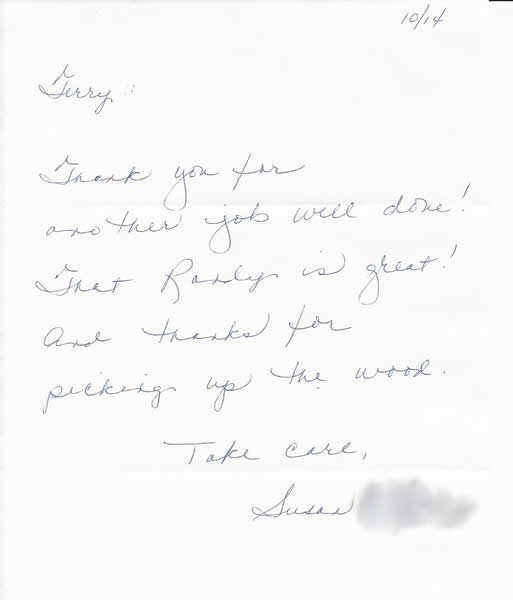 10/14
Terry:
Thank you for
another job well done!
That Randy is great!
And thanks for
picking up the wood.
Take care,
Susan